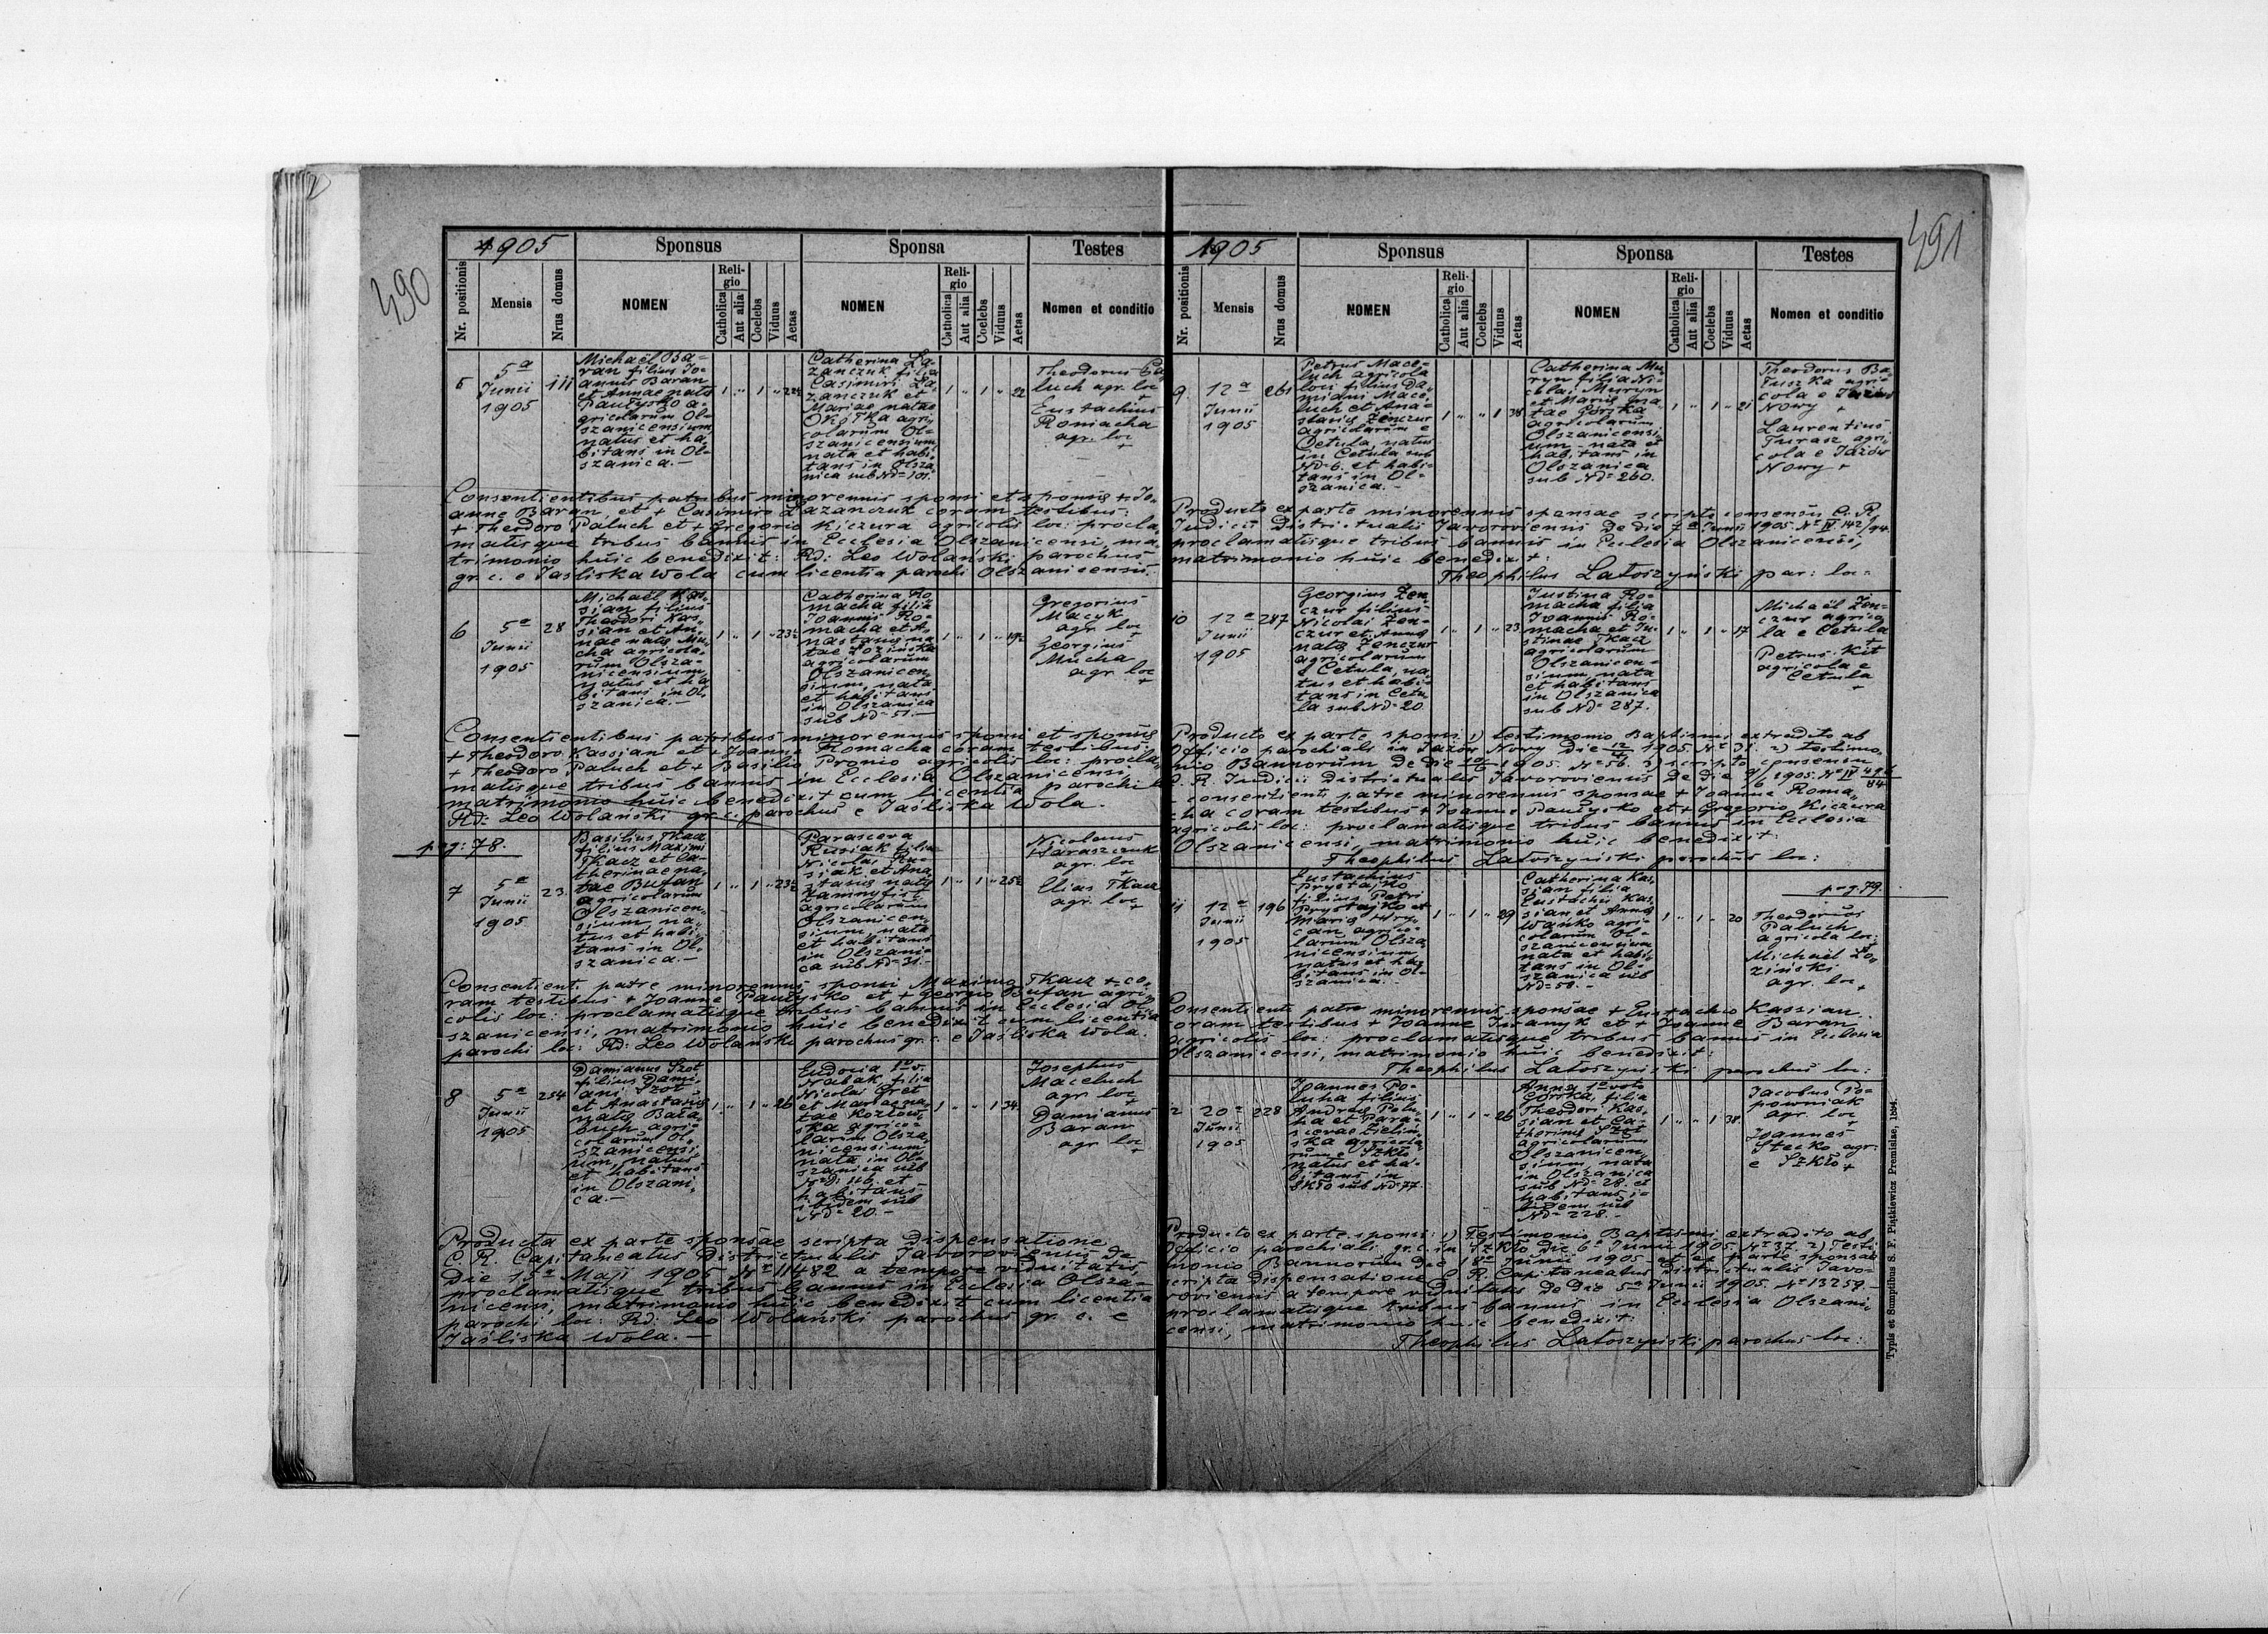 490
1905
Sponsus
Sponsa
Testes
Nr. positionis
Mensis
Nrus domus
NOMEN
Religio
Catholica
Aut alia
Coelebs
Viduus
Aetas
NOMEN
Religio
Catholica
Aut alia
Coelebs
Viduus
Aetas
Nomen et conditio
5
5a
Junii
1905
111
Michaël Ba=
ran filius Jo=
annis Baran
et Annae nata
Paułyśko a=
gricolarum Ol=
szanicensium
natus et ha,
bitans in Ol=
szanica.—
1 " 1 "
Catherina Ła=
zanczuk filia
Casimiri Ła,
zanczuk et
Mariae natae
agri,
colarum Ol=
szanicensium
nata et habi,
tans in Olsza,
nica sub Nd=101.
1 " 1 " 22
Theodorus Pa
luch agr. loc
+
Eustachius
Romacha
agr. loc
+
Consentientibus patribus minorennis sponsi et sponsę + Jo,
anne Baran, et + Casimiro Łazanczuk coram testibus:
+ Theodoro Paluch et + Gregorio Kiczura agricolis loc: procla,
matisque tribus bannis in Ecclesia Olszanicensi, ma,
trimonio huic benedixit: Rd: Leo Wolański parochus
gr. c. e Jaśliska Wola cum licentia parochi Olszanicensis.
6
5a
Junii
1905
28
Michaël Kas,
sian filius
Theodori Kas,
sian et An,
nae natę Mu,
cha agricola,
rum Olsza=
nicensium,
natus et ha
bitans in Ol,
szanica.—
1 " 1 " 23½
Catherina Ro,
macha filia
Joannis Ro=
macha et A,
nastasiae na
tae Łozińska
agricolarum
Olszanicen,
sium, nata
et habitans
in Olszanica
sub Nd=51.—
1 " 1 " 19½
Gregorius
Macyk
agr. loc
+
Georgius
Mucha
agr. loc
+
Consentientibus patribus minorennis sponsi et sponsę
+ Theodoro Kassian et + Joanne Romacha coram testibus:
+ Theodoro Paluch et + Basilio Pronio agricolis loc: procla,
matisque tribus bannis in Ecclesia Olszanicensi,
matrimonio huic benedixit cum licentia parochi
Rd: Leo Wolański gr. c. parochus e Jaśliska Wola.
pag: 78.
7
5a
Junii
1905
23.
Basilius Tkacz
filius Maximi
Tkacz et Ca=
therinae na,
tae Bufan
agricolarum
Olszanicen,
sium, na=
tus et habi,
tans in Ol=
szanica.—
1 " 1 " 23½
Parasceva
Rusiak filia
Nicolai Ru=
siak et Ana
stasię natę
agricolarum
Olszanicen,
sium, nata
et habitans
in Olszani=
ca sub Nd=31.—
1 " 1 " 25½
Nicolaus
Haraszczuk
agr. loc
+
Elias Tkacz
agr. loc
+
Consentient. patre minorennis sponsi Maximo Tkacz + co,
ram testibus + Joanne Paułyśko et + Georgio Bufan agri,
colis loc: proclamatisque tribus bannis in Ecclesia Ol,
szanicensi, matrimonio huic benedixit cum licentia
parochi loc: Rd: Leo Wolański parochus gr. c. e Jaśliska Wola.
8
5a
Junii
1905
254
Damianus Szot
filius Dami,
ani Szot
et Anastasię
natę Bała,
buch agri=
colarum Ol,
szanicensi,
um, natus
et habitans
in Olszani,
ca.—
1 " 1 " 26
Eudocia 1o v.
Habak filia
Nicolai Gret
et Mariae na,
tae Kozłow,
ska agrico=
larum Olsza,
nicensium
nata in Ol=
szanica sub
Nd: 116. et
habitans
ibidem sub
Nd= 20.—
1 " " 1 34.
Josephus
Maceluch
agr. loc
+
Damianus
Baran
agr. loc
+
Producta ex parte sponsae scripta dispensatione
C. R. Capitaneatus Districtualis Javoroviensis de
die 15a Maji 1905 Nr 11482 a tempore viduitatis
proclamatisque tribus bannis in Ecclesia Olsza=
nicensi, matrimonio huic benedixit cum licentia
parochi loc: Rd: Leo Wolański parochus gr. c. e
Jaśliska Wola.—
491
1905
Sponsus
Sponsa
Testes
Nr. positionis
Mensis
Nrus domus
NOMEN
Religio
Catholica
Aut alia
Coelebs
Viduus
Aetas
NOMEN
Religio
Catholica
Aut alia
Coelebs
Viduus
Aetas
Nomen et conditio
9
12a
Junii
1905
261
Petrus Mace=
luch agricola
loci filius Da,
miani Mace,
luch et Ana=
stasię Zenczur
agricolarum e
Cetula, natus
in Cetula sub
Nd=6. et habi=
tans in Ol=
szanica.—
1 " " 1 38
Catherina Mu
ryn filia Ni=
colai Muryn
et Marię na=
tae Górska
agricolarum
Olszanicensi,
um nata et
habitans in
Olszanica
sub Nd=260.
1 " 1 " 21
Theodorus Ba=
łuszka agri=
cola e Jażów
Nowy +
Laurentius
Turasz agri,
cola e Jażów
Nowy +
Producto ex parte minorennis sponsae scripto consensu C. R.
Judicii Districtualis Javoroviensis de die 7a Junii 1905. Nr IV 142/94.
proclamatisque tribus bannis in Ecclesia Olszanicensi,
matrimonio huic benedixi
Theophilus Łatoszyński par: loc=
10
12a
Junii
1905
287
Georgius Zen,
czur filius
Nicolai Zen=
czur et Annę
natę Zenczur
agricolarum
e Cetula, na,
tus et habi=
tans in Cetu
la sub Nd=20.
1 " 1 " 23
Justina Ro=
macha filia
Joannis Ro=
macha et Ju=
stinae Tkacz
agricolarum
Olszanicen=
sium, nata
et habitans
in Olszanica
sub Nd= 287.
1 " 1 " 17
Michaël Zen=
czur agrico
la e Cetula
+
Petrus Kit
agricola e
Cetula
+
Producto ex parte sponsi 1) testimonio Baptismi extradito ab
Officio parochiali in Jażów Nowy die 1905. Nr 31. 2) testimo,
nio Bannorum de die 10/6 1905. Nr 56. 3) scripto consensu
C. R. Judicii Districtualis Javoroviensis de die 9/6 1905. Nr IV
consentient. patre minorennis sponsae + Joanne Roma,
cha coram testibus + Joanne Paułyśko et + Gregorio Kiczura
agricolis loc: proclamatisque tribus bannis in Ecclesia
Olszanicensi, matrimonio huic benedixit:
Theophilus Łatoszyński parochus loc:
pag. 79.
11
12a
Junii
1905
196
Eustachius
Prystajko
filius Petri
Prystajko et
Marię Hry,
can agrico=
larum Olsza
nicensium
natus et ha
bitans in Ol=
szanica.—
1 " 1 " 29
Catherina Kas,
sian filia
Eustachii Kas,
sian et Annę
Wańko agri=
colarum Ol=
szanicensium
nata et habi,
tans in Ol=
szanica sub
Nd=59.—
1 " 1 " 20
Theodorus
Paluch
agricola loc:
+
Michaël Ło,
ziński
agr. loc +
Consentient. patre minorennis sponsae + Eustachio Kassian
coram testibus + Joanne et + Joanne Baran
agricolis loc: proclamatisque tribus bannis in Ecclesia
Olszanicensi, matrimonio huic benedixit:
Theophilus Łatoszyński parochus loc:
2
20a
Junii
1905
228
Joannes Po=
luha filius
Andreę Polu,
ha et Para=
scevae Zielin,
ska agricola,
rum e Szkło
natus et ha=
bitans in
Szkło sub Nd=77.
1 " 1 " 26
Anna 1o voto
Górska, filia
Theodori Kas,
sian et Ca=
therinę Szot
agricolarum
Olszanicen,
sium, nata
in Olszanica
sub Nd= 28. et
habitans i=
bidem sub
Nd= 228.—
1 " " 1 38.
Jacobus Po=
powniak
agr. loc
+
Joannes
Stecko agr.
e Szkło +
Producto ex parte sponsi: 1) Testimonio Baptismi extradito ab
Officio parochiali gr. c. in Szkło die 6a Junii 1905. Nr 37. 2) Testi
monio Bannorum de 18a Junii 1905 et ex parte sponsae
scripta dispensatione C. R. Capitaneatus Districtualis Javo=
roviensis a tempore viduitatis de die 5a Junii 1905. Nr 13259.—
proclamatisque tribus bannis in Ecclesia Olszani,
censi, matrimonio huic benedixit:
Theophilus Łatoszyński parochus loc:
Typis et Sumptibus S. F. Piątkiewicz Premisliae, 1894.